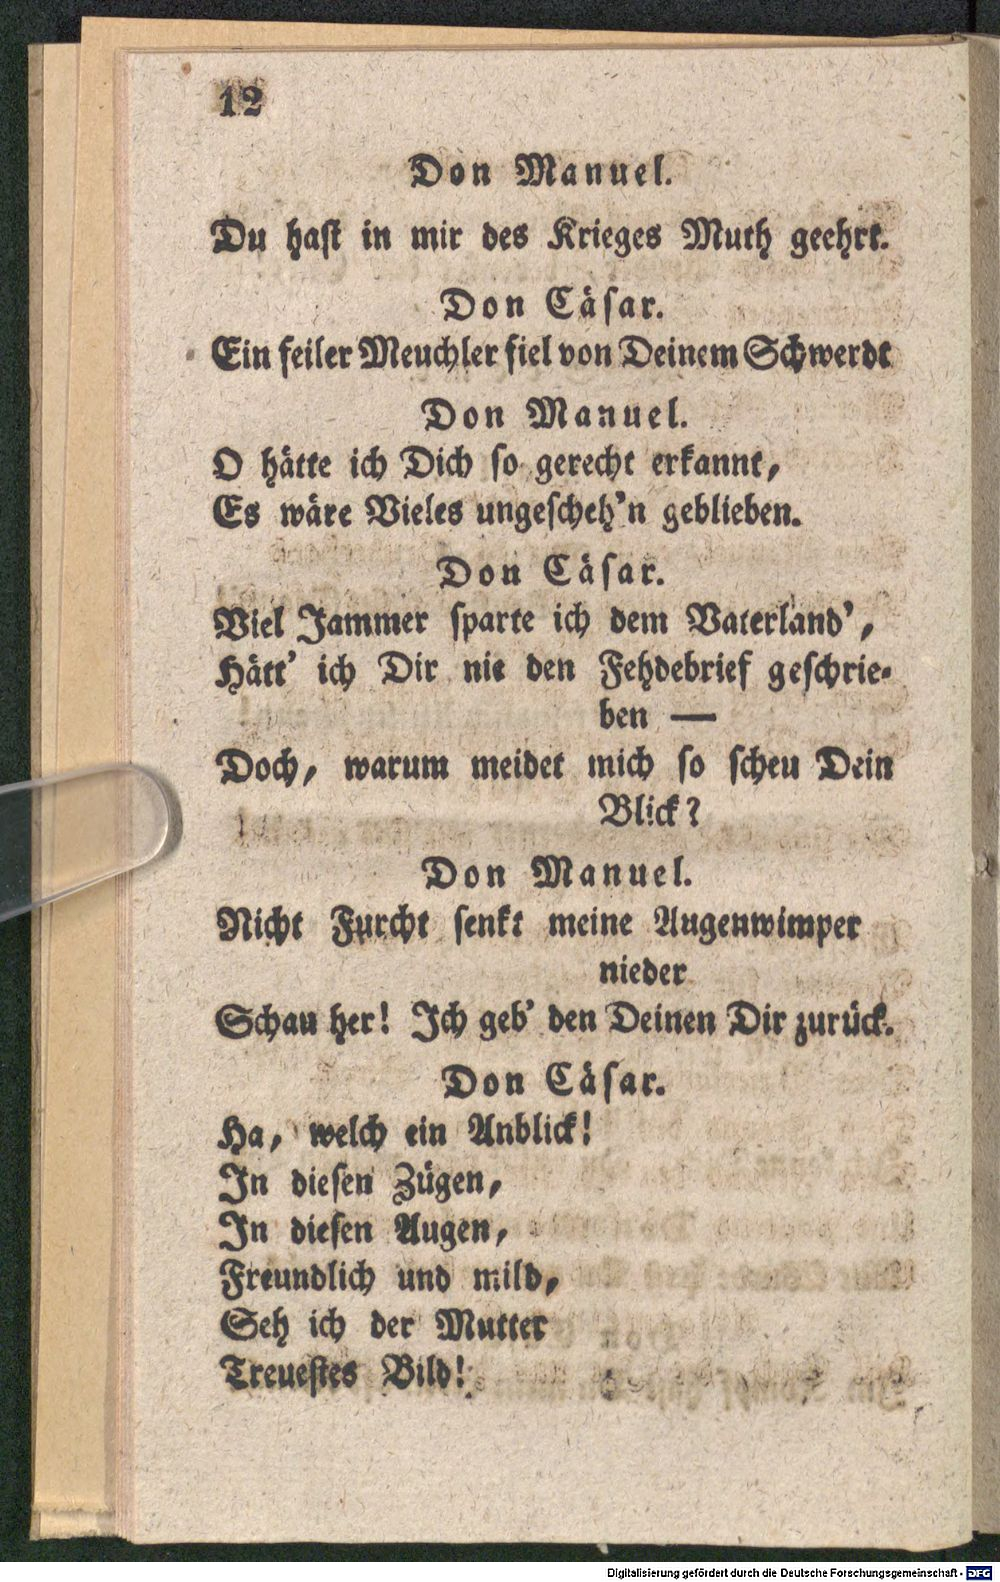 12
Don Manuel.
Du haſt in mir des Krieges Muth geehrt.
Don Cäſar.
Ein feiler Meuchler fiel von Deinem Schwerdt
Don Manuel.
O hätte ich Dich ſo gerecht erkannt,
Es wäre Vieles ungeſcheh'n geblieben.
Don Cäſar.
Viel Jammer ſparte ich dem Vaterland',
Hätt' ich Dir nie den Fehdebrief geſchrie-
ben —
Doch, warum meidet mich ſo ſcheu Dein
Blick?
Don Manuel.
Nicht Furcht ſenkt meine Augenwimper
nieder
Schau her! Ich geb' den Deinen Dir zurück.
Don Cäſar.
Ha, welch ein Anblick!
In dieſen Zügen,
In dieſen Augen,
Freundlich und mild,
Seh ich der Mutter
Treueſtes Bild!
Digitalisierung gefördert durch die Deutsche Forschungsgemeinschaft - DFG